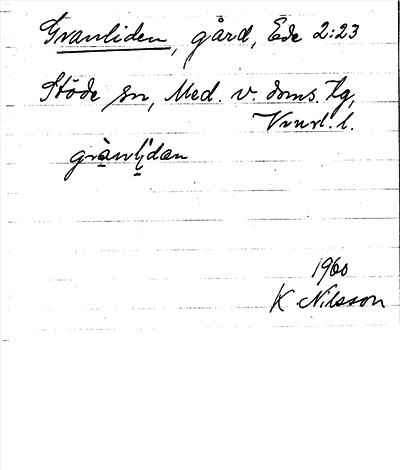 Granliden, gård, Ede 2:23
Stöde sn, Med. v. doms. tg,
Vnrl. l.
grànlídan
1960
K Nilsson